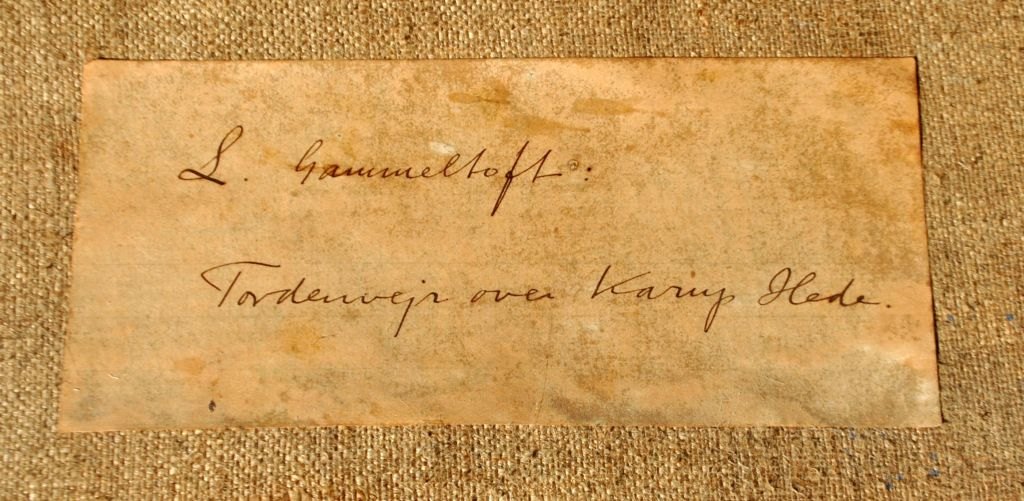 L. Gammeltoft:
Tordenvejr over Karup Hede.